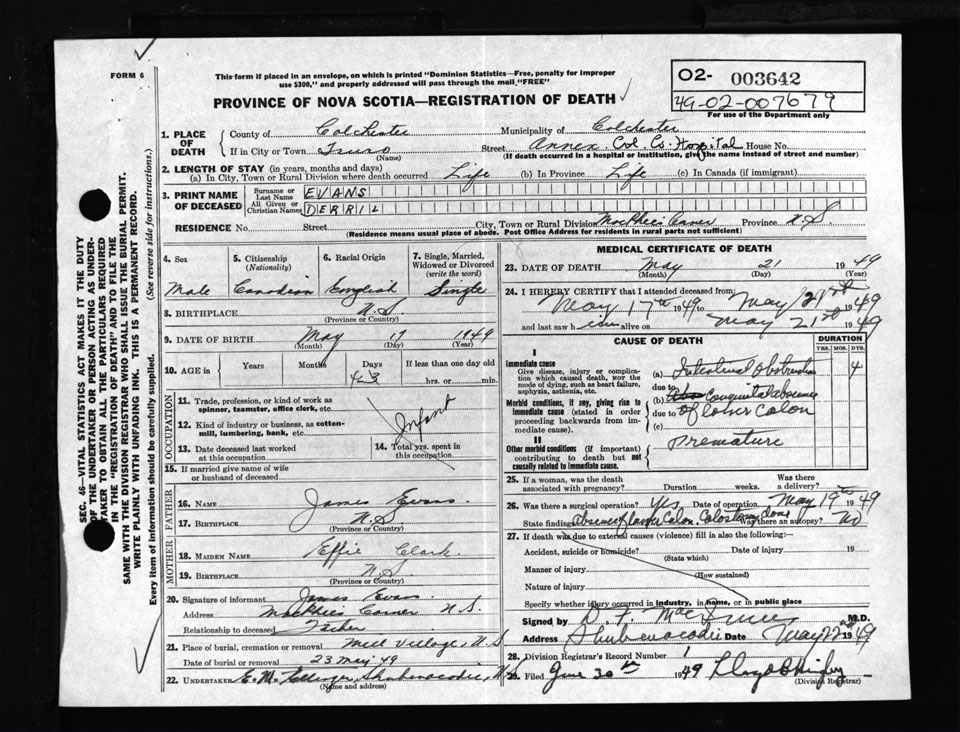 FORM 6
This form if placed in an envelope, on which is printed "Dominion Statistics—Free, penalty for improper
use $300," and properly addressed will pass through the mail "FREE"
O2- 003642
49-02-007679
For use of the Department only
PROVINCE OF NOVA SCOTIA—REGISTRATION OF DEATH
1. PLACE OF DEATH
County of Colchester Municipality of Colchester
If in City or Town Truro Street Annex Col. Co. Hospital House No.
(Name) (If death occurred in a hospital or institution, give the name instead of street and number)
2. LENGTH OF STAY (in years, months and days)
(a) In City, Town or Rural Division where death occurred Life (b) In Province Life (c) In Canada (if immigrant)
3. PRINT NAME OF DECEASED
Surname or Last Name EVANS
All Given or Christian Names DERRIL
RESIDENCE No. Street City, Town or Rural Division Province N.S.
(Residence means usual place of abode. Post Office Address for residents in rural parts not sufficient)
4. Sex
Male
5. Citizenship (Nationality)
Canadian
6. Racial Origin
English
7. Single, Married, Widowed or Divorced (write the word)
Single
8. BIRTHPLACE N.S.
(Province or Country)
9. DATE OF BIRTH May 17 1949
(Month) (Day) (Year)
10. AGE in Years Months Days If less than one day old
hrs. or min.
OCCUPATION
11. Trade, profession, or kind of work as spinner, teamster, office clerk, etc.
Infant
12. Kind of industry or business, as cotton-mill, lumbering, bank, etc.
13. Date deceased last worked at this occupation
14. Total yrs. spent in this occupation
15. If married give name of wife or husband of deceased
FATHER
16. NAME James Evans
17. BIRTHPLACE N.S.
(Province or Country)
MOTHER
18. MAIDEN NAME Effie Clark
19. BIRTHPLACE N.S.
(Province or Country)
20. Signature of informant James Evans
Address Corner N.S.
Relationship to deceased Father
21. Place of burial, cremation or removal Mill Village, N.S
Date of burial or removal 23 May '49
22. UNDERTAKER E.M. Shubenacadie, N.S.
(Name and address)
MEDICAL CERTIFICATE OF DEATH
23. DATE OF DEATH May 21 1949
(Month) (Day) (Year)
24. I HEREBY CERTIFY that I attended deceased from:
May 17th 1949 to May 21st 1949
and last saw him alive on May 21st 1949
CAUSE OF DEATH DURATION
YRS. MOS. DYS.
I
Immediate cause
Give disease, injury or complication which caused death, not the mode of dying, such as heart failure, asphyxia, asthenia, etc.
(a) Intestinal Obstruction 4
due to
Morbid conditions, if any, giving rise to immediate cause (stated in order proceeding backwards from immediate cause).
(b) Congenital absence
due to of lower colon
(c)
II
Other morbid conditions (if important) contributing to death but not causally related to immediate cause.
Premature
25. If a woman, was the death associated with pregnancy? Duration weeks. Was there a delivery?
26. Was there a surgical operation? Yes Date of operation May 19th 1949
State findings Absence of lower Colon. Colostomy done Was there an autopsy? No
27. If death was due to external causes (violence) fill in also the following:—
Accident, suicide or homicide? Date of injury 19
(State which)
Manner of injury
(How sustained)
Nature of injury
Specify whether injury occurred in industry, in home, or in public place
Signed by M.D.
Address Shubenacadie Date May 22nd 1949
28. Division Registrar's Record Number 1
29. Filed June 30th 1949
(Division Registrar)
SEC. 46—VITAL STATISTICS ACT MAKES IT THE DUTY
OF THE UNDERTAKER OR PERSON ACTING AS UNDER-
TAKER TO OBTAIN ALL THE PARTICULARS REQUIRED
IN THE "REGISTRATION OF DEATH" AND TO FILE THE
SAME WITH THE DIVISION REGISTRAR WHO SHALL ISSUE THE BURIAL PERMIT.
WRITE PLAINLY WITH UNFADING INK. THIS IS A PERMANENT RECORD.
Every item of information should be carefully supplied. (See reverse side for instructions.)